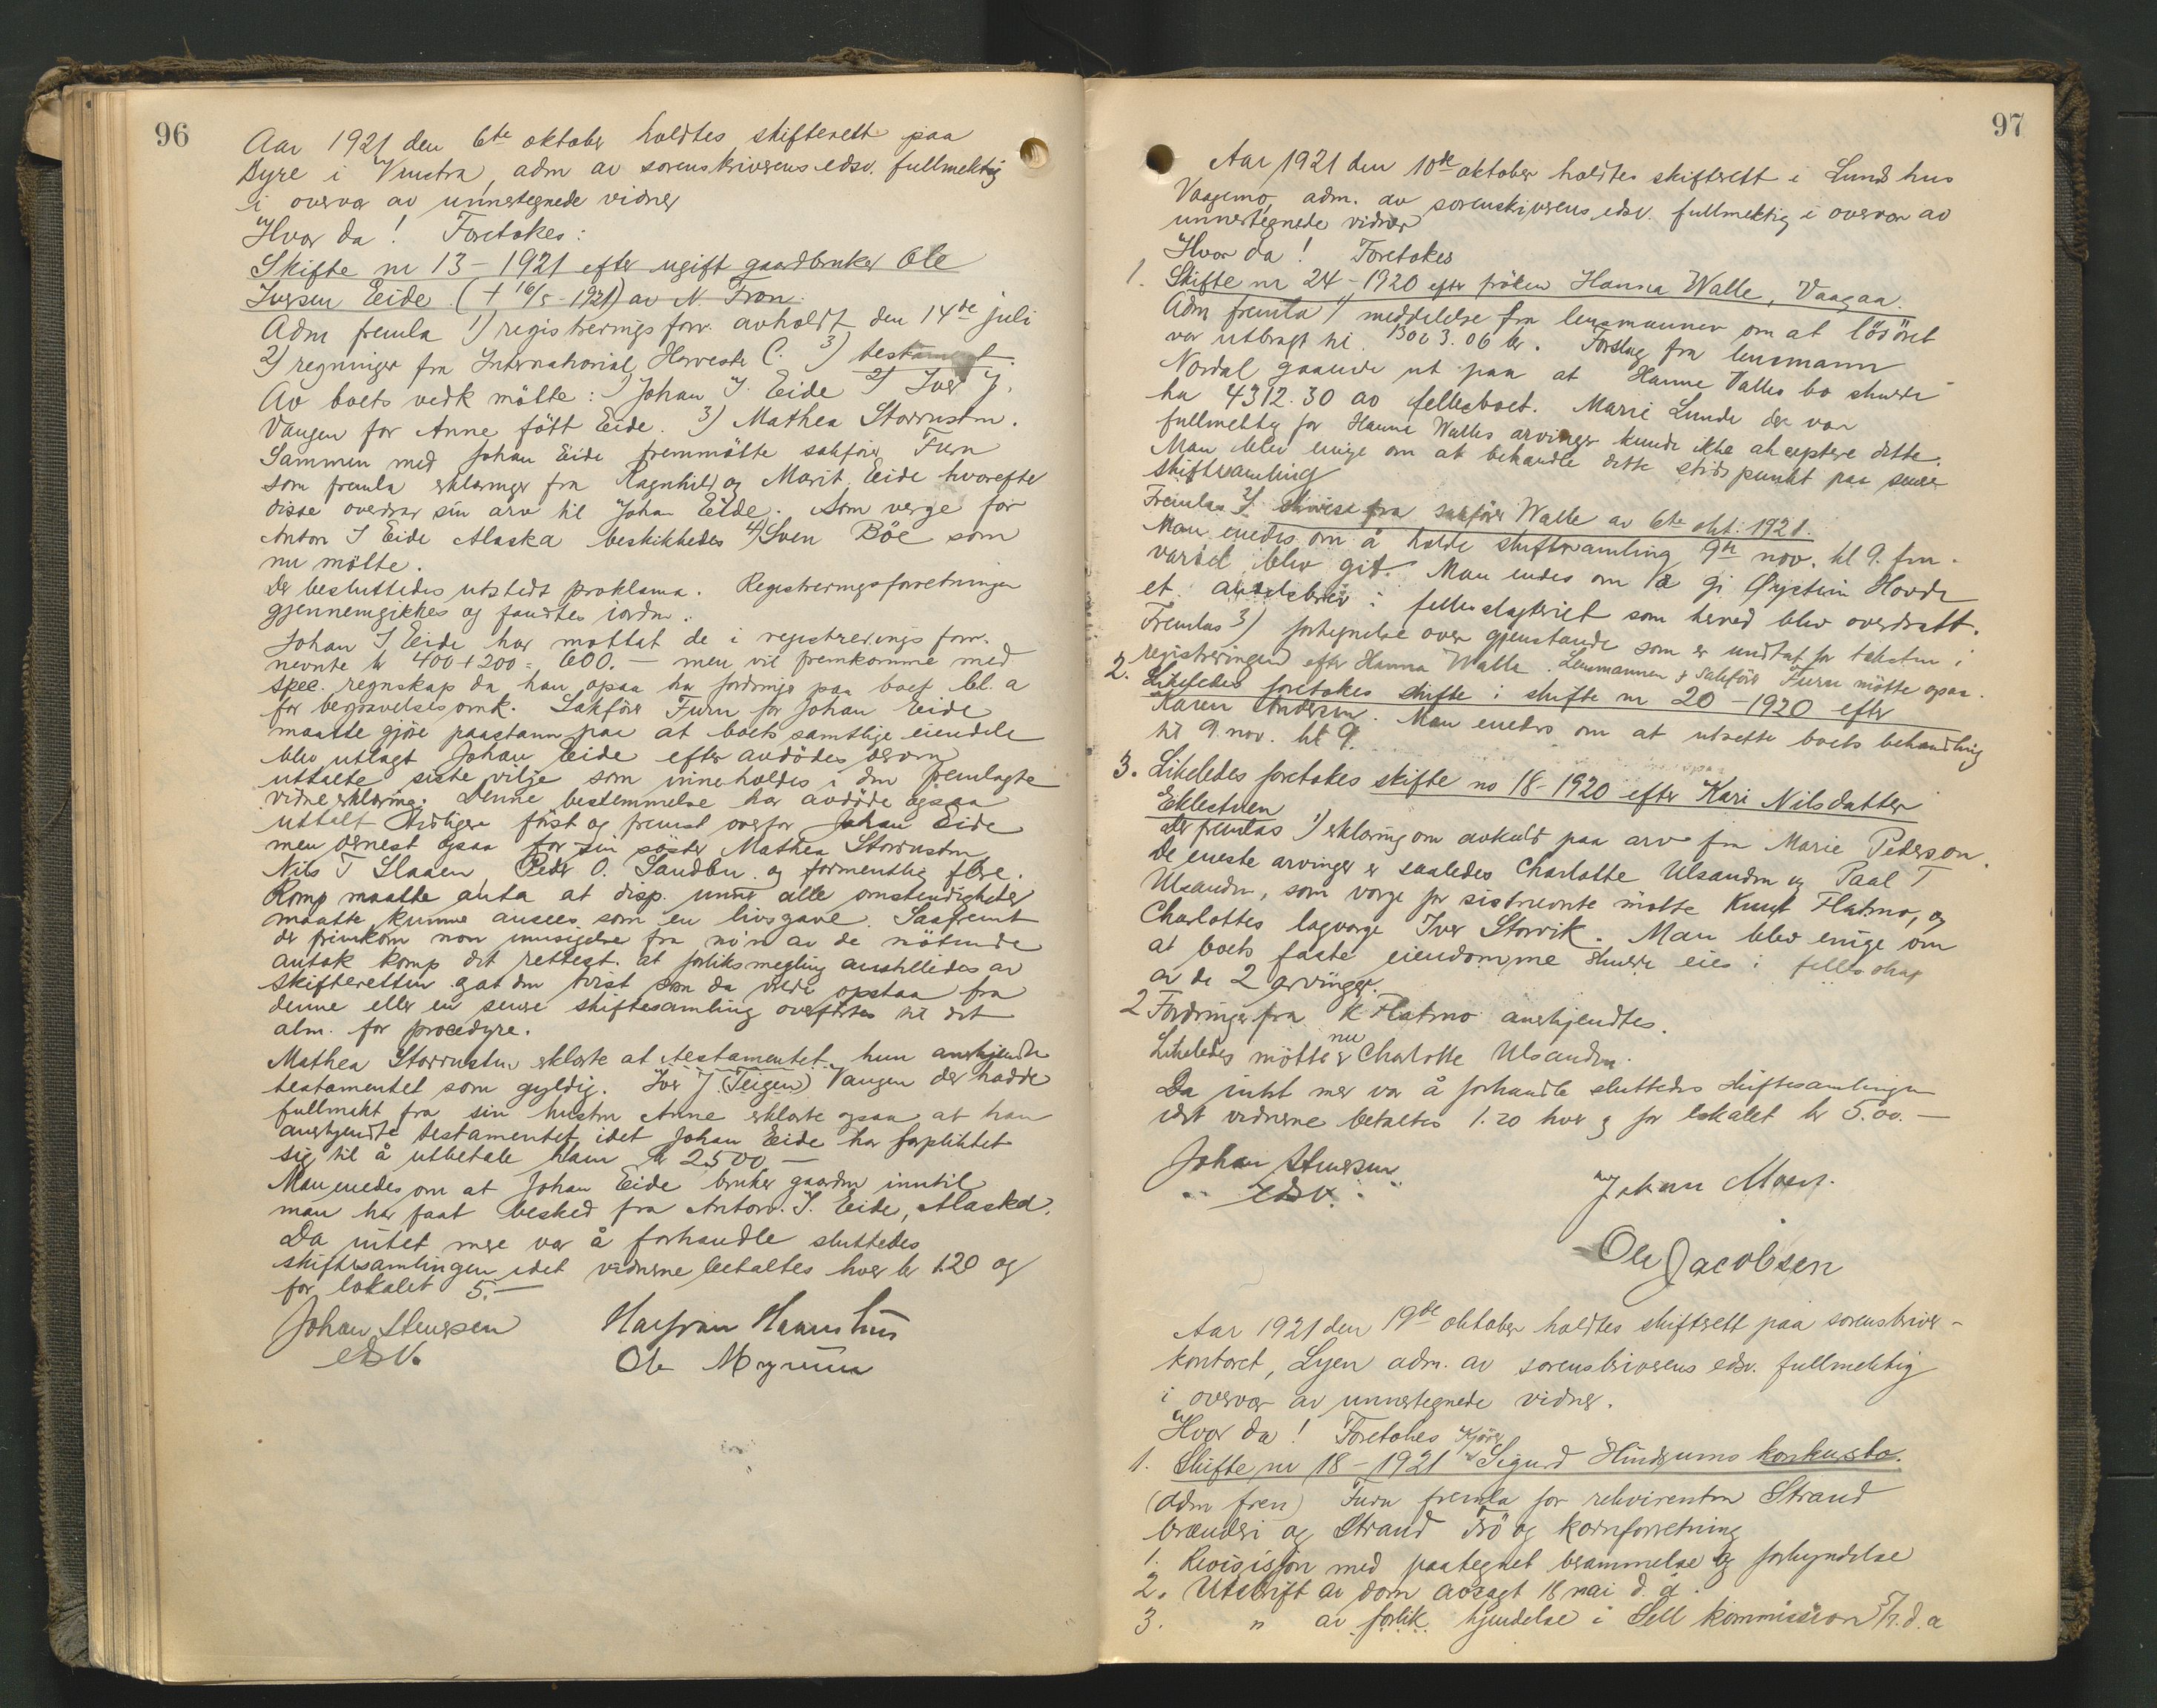 96
Aar 1921 den 6te oktober holdtes skifterett paa
Byre i Vinstra, adm av sorenskriverens edsv. fullmektig
i overvær av unnertegnede vidner
Hvor da! Foretokes:
Skifte nr 13 - 1921 efter ugift gaardbruker Ole
Iversen Eide († 16/5 - 1921) av N. Fron.
Adm fremla 1) registreringsforr. avholdt den 14de juli
2) regninger fra International Harvester C. 3) testament.
Av boets vedk mötte: 1) Johan I. Eide 2) Iver J.
Vangen for Anne född Eide. 3) Mathea Storrusten.
Sammen med Johan Eide fremmötte sakförer Furu
som fremla erklæringer fra Ragnhild og Marit Eide hvorefter
disse overdrar sin arv til Johan Eide. Som verge for
Anton I Eide Alaska beskikkedes 4) Sven Böe som
nu mötte.
Der besluttedes utstedt proklama. Registreringsforretningen
gjennemgikkes og fandtes iorden.
Johan I Eide har mottat de i registrerings forr.
nevnte kr 400 + 200 = 600. — men vil fremkomme med
spec. regnskap da han ogsaa har fordringer paa boet bl. a
for begravelsesomk. Sakförer Furu for Johan Eide
maatte gjöre paastann paa at boets samtlige eiendele
blev utlagt Johan Eide efter avdödes
uttalte siste vilje som inneholdes i den fremlagte
vidneerklæring. Denne bestemmelse har avdöde ogsaa
uttalt tidligere först og fremst overfor Johan Eide
men dernest ogsaa for sin söster Mathea Storrusten
Nils T Slaaen, Peder O. Sandbu og formentlig flere.
Komp maatte anta at disp. unner alle omstendigheter
maatte kunne ansees som en livsgave. Saafremt
der fremkom noen innsigelse fra non av de mötende
antok komp det rettest at forliksmegling anstilledes av
skifteretten og at den tvist som da vilde opstaa fra
denne eller en senere skiftesamling overförtes til det
alm. for procedyre.
Mathea Storrusten erklærte at testamentet hun anerkjendte
testamentet som gyldig. Iver J (Teigen) Vangen der hadde
fullmakt fra sin hustru Anne erklærte ogsaa at han
anerkjendte testamentet idet Johan Eide har forpliktet
sig til å utbetale ham kr 2500 —
Man enedes om at Johan Eide bruker gaarden inntil
man har faat besked fra Anton I. Eide, Alaska.
Da intet mere var å forhandle sluttedes
skiftesamlingen idet vidnerne betaltes hver kr 1.20 og
for lokalet 5. —
Johan Stensen
edsv.
Ole Myrum
97
Aar 1921 den 10de oktober holdtes skifterett i Lunds hus
Vaagemo, adm. av sorenskriverens edsv. fullmektig i overvær av
unnertegnede vidner
Hvor da! Foretokes
1. Skifte nr 24 - 1920 efter fröken Hanna Walle, Vaagaa.
Adm fremla 1) meddelelse fra lensmannen om at lösöret
var utbragt til 3.06 kr. Forslag fra lensmann
Nordal gaaende ut paa at Hanna Valles bo skulde
ha 4312.30 av fellesboet. Marie Lunde der var
fullmektig for Hanna Walles arvinger kunde ikke akceptere dette.
Man blev enige om at behandle dette stridspunkt paa senere
skiftesamling
Fremlas 2) skrivelse fra sakförer Walle av 6te okt. 1921.
Man enedes om å holde skiftesamling 9de nov. kl 9. fm.
varsel blev git. Man endes om å gi Øystein Hovde
et andelsbrev i fellesslagteriet som herved blev overdratt.
Fremlas 3) fortegnelse over gjenstande som er undtat fra taksten i
registreringen efter Hanna Walle. Lensmannen & Sakförer Furu mötte ogsaa.
2. Likeledes foretokes skifte i skifte nr 20 - 1920 efter
Karen Andersen. Man enedes om at utsette boets behandling
til 9. nov. kl 9.
3. Likeledes foretokes skifte no 18 - 1920 efter Kari Nilsdatter
Eklestuen
Der fremlas 1) erklæring om avkald paa arv fra Marie Pederson.
De eneste arvinger er saaledes Charlotte Ulsanden og Paal T
Ulsanden, som verge for sistnevnte mötte Knut Flatmo, og
Charlottes lagverge Iver Storvik. Man blev enige om
at boets faste eiendomme skulde eies i fellesskap
av de 2 arvinger.
2 Fordringer fra K Flatmo anerkjendtes.
Likeledes mötte nu Charlotte Ulsanden.
Da intet mer var å forhandle sluttedes skiftesamlingen
idet vidnerne betaltes 1.20 hver og for lokalet kr 5.00. —
Johan Stensen
edsv.
Johan Moen.
Ole Jacobsen
Aar 1921 den 19de oktober holdtes skifterett paa sorenskriver-
kontoret, Lyen adm. av sorenskriverens edsv. fullmektig
i overvær av unnertegnede vidner.
Hvor da! Foretokes
1. Skifte nr 18 - 1921 Sigurd Hindsums konkursbo.
(Adm frem) Furu fremla for rekvirenten Strand
brænderi og Strand Frö og kornforretning
1. Rekvisisjon med paategnet berammelse og forkyndelse
2. Utskrift av dom avsagt 18 mai d. å.
3. " av forlik kjendelse i Sell kommission d. a